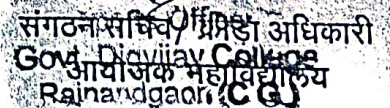 Officer
संगठन सचिव / क्रीड़ा अधिकारी
Govt. Digvijay College
आयोजक महाविद्यालय
Rajnandgaon (C.G.)